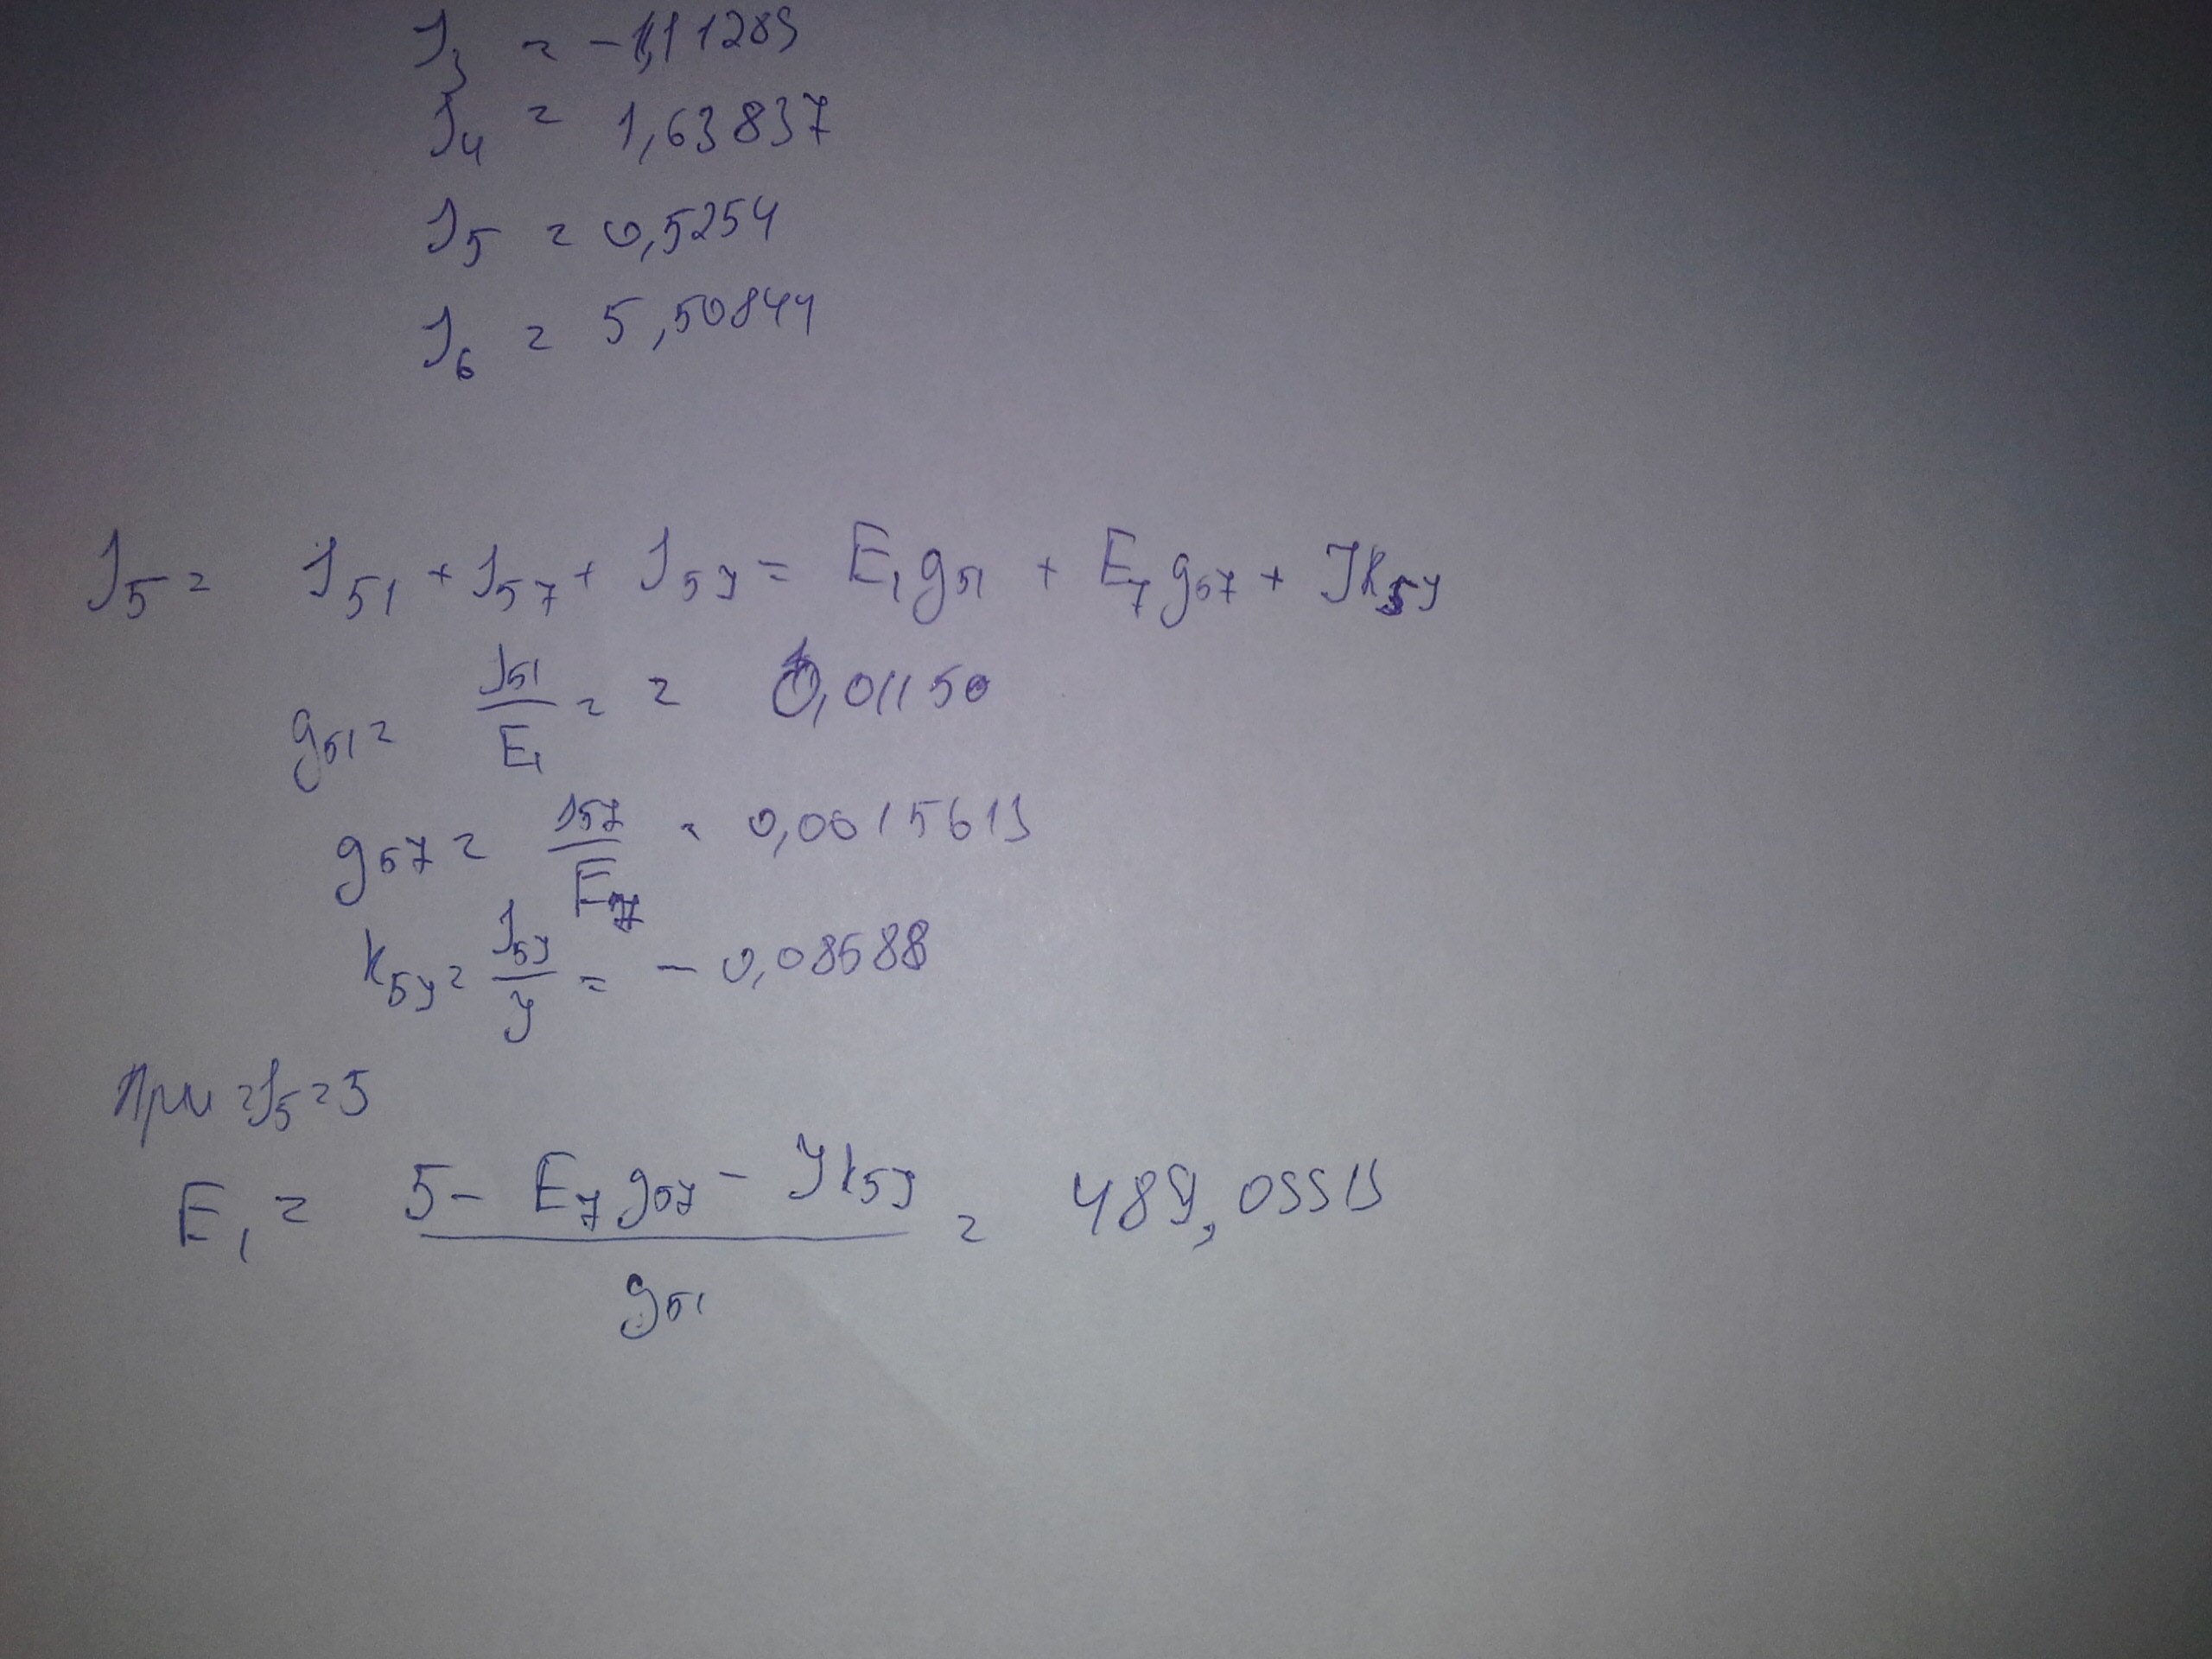 J₃ = -1,11289
J₄ = 1,63837
J₅ = 0,5254
J₆ = 5,50844
J₅ = J₅₁ + J₅₇ + J₅J = E₁g₅₁ + E₇g₅₇ + Jk₅J
g₅₁ = J₅₁/E₁ = = 0,01150
g₅₇ = J₅₇/E₇ = 0,0015619
k₅J = J₅J/J = - 0,08688
При = J₅ = 5
E₁ = (5 - E₇g₅₇ - Jk₅J)/g₅₁ = 489,09919